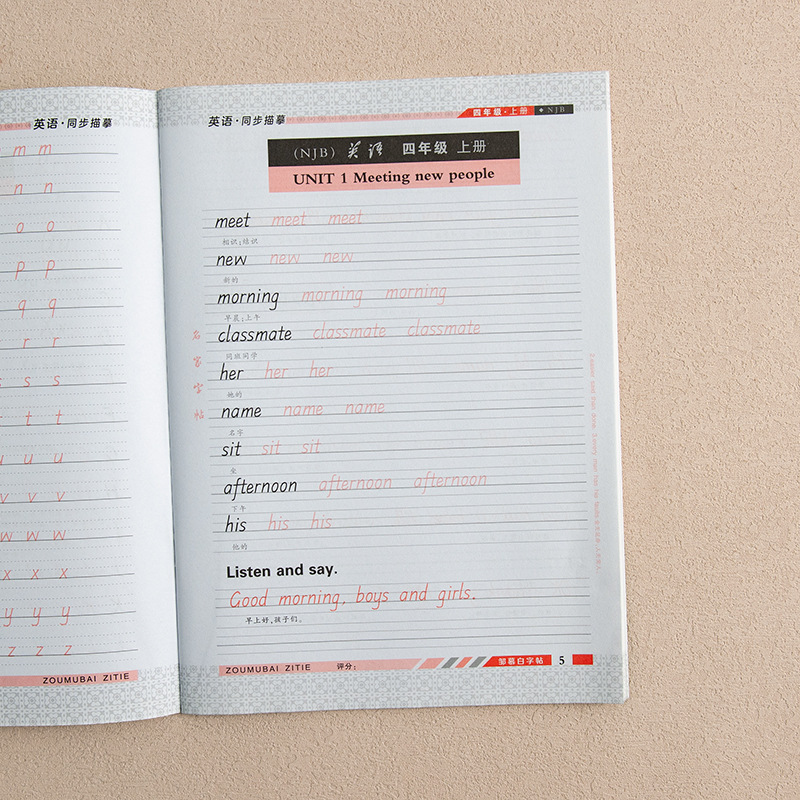 英语·同步描摹
m m
n n
o o
p p
q q
r r
s s s
t t
u u u
v v
w w w
x x
y y y
z z
ZOUMUBAI ZITIE
英语·同步描摹
四年级·上册 ◆ NJB
(NJB) 英语 四年级 上册
UNIT 1 Meeting new people
meet meet meet
相识;结识
new new new
新的
morning morning morning
早晨;上午
classmate classmate classmate
同班同学
her her her
她的
name name name
名字
sit sit sit
坐
afternoon afternoon afternoon
下午
his his his
他的
名家字帖
Listen and say.
Good morning, boys and girls.
早上好,孩子们。
ZOUMUBAI ZITIE 评分:
邹慕白字帖 5